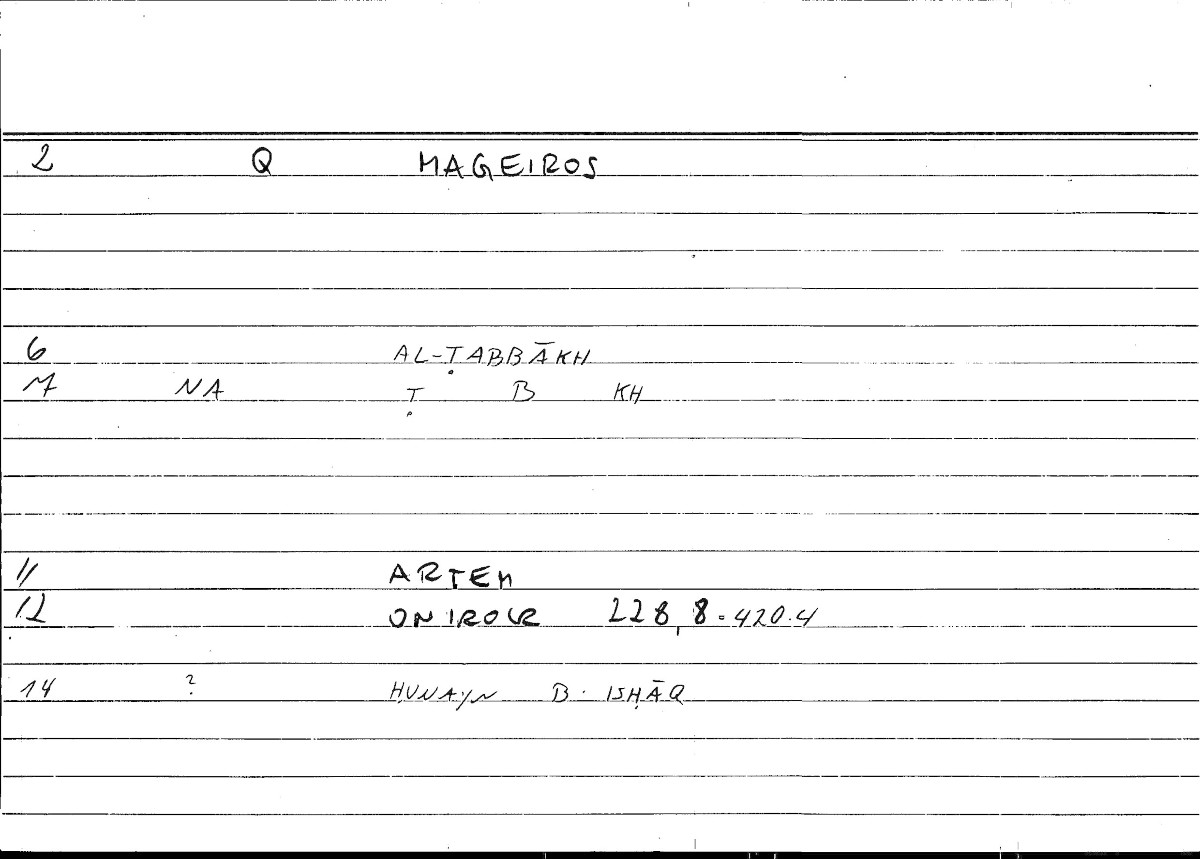 2 Q MAGEIROS
6 AL-ṬABBĀKH
7 NA Ṭ B KH
11 ARTEM
12 ONIROCR 228,8 = 420.4
14 ? ḤUNAYN B. ISḤĀQ